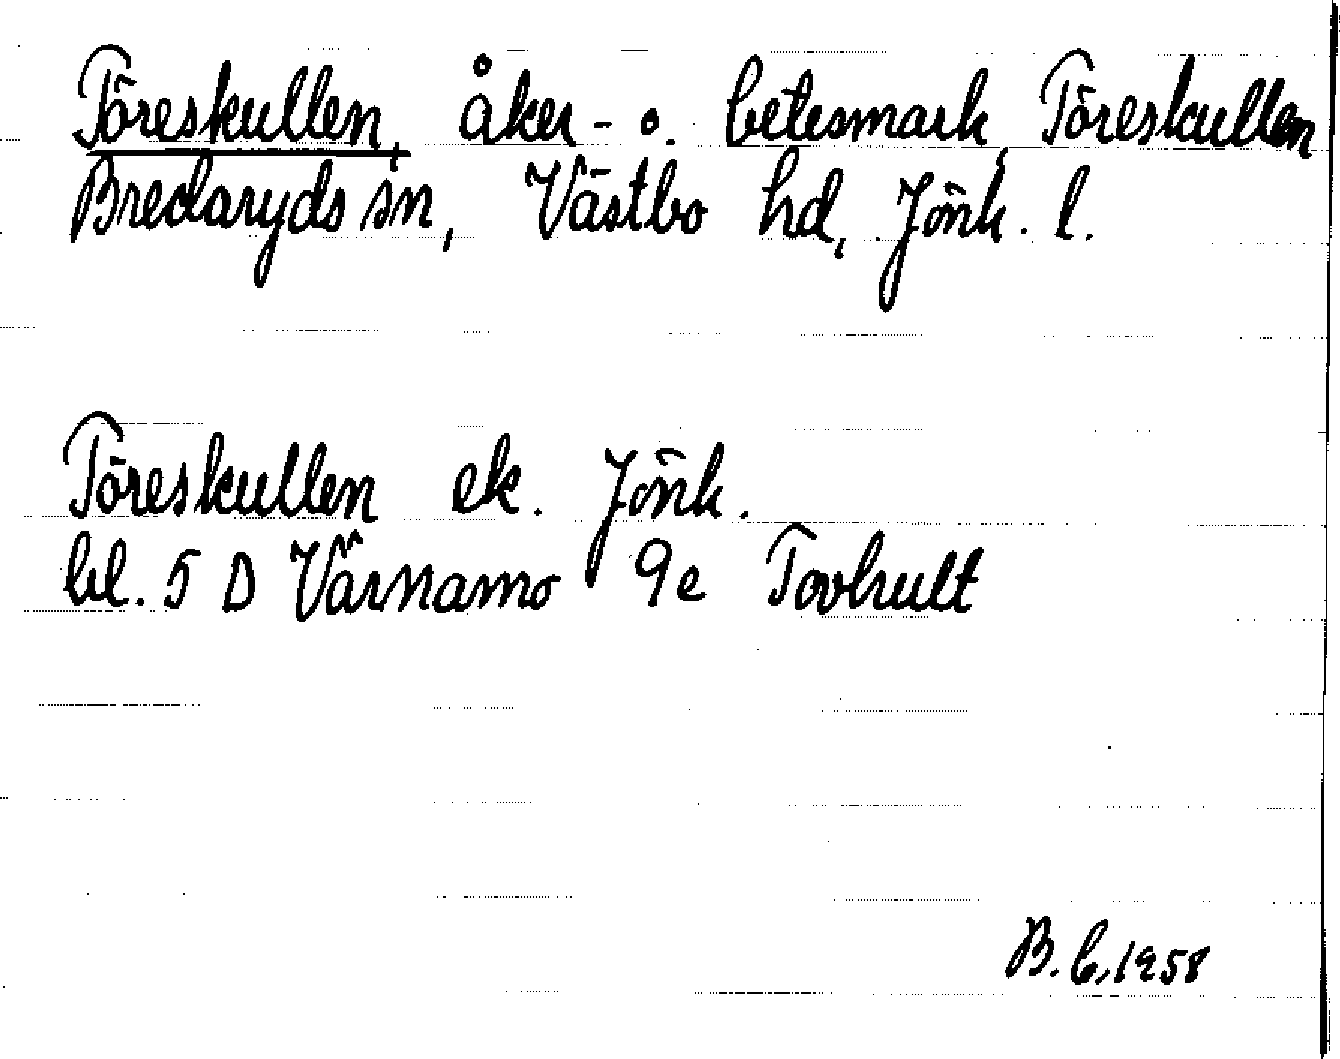 Töreskullen, åker- o. betesmark, Töreskullen
Bredaryds sn, Västbo hd, Jönk. l.
Töreskullen ek. Jönk.
bl. 5 D Värnamo 9e Tovhult
B. C, 1958